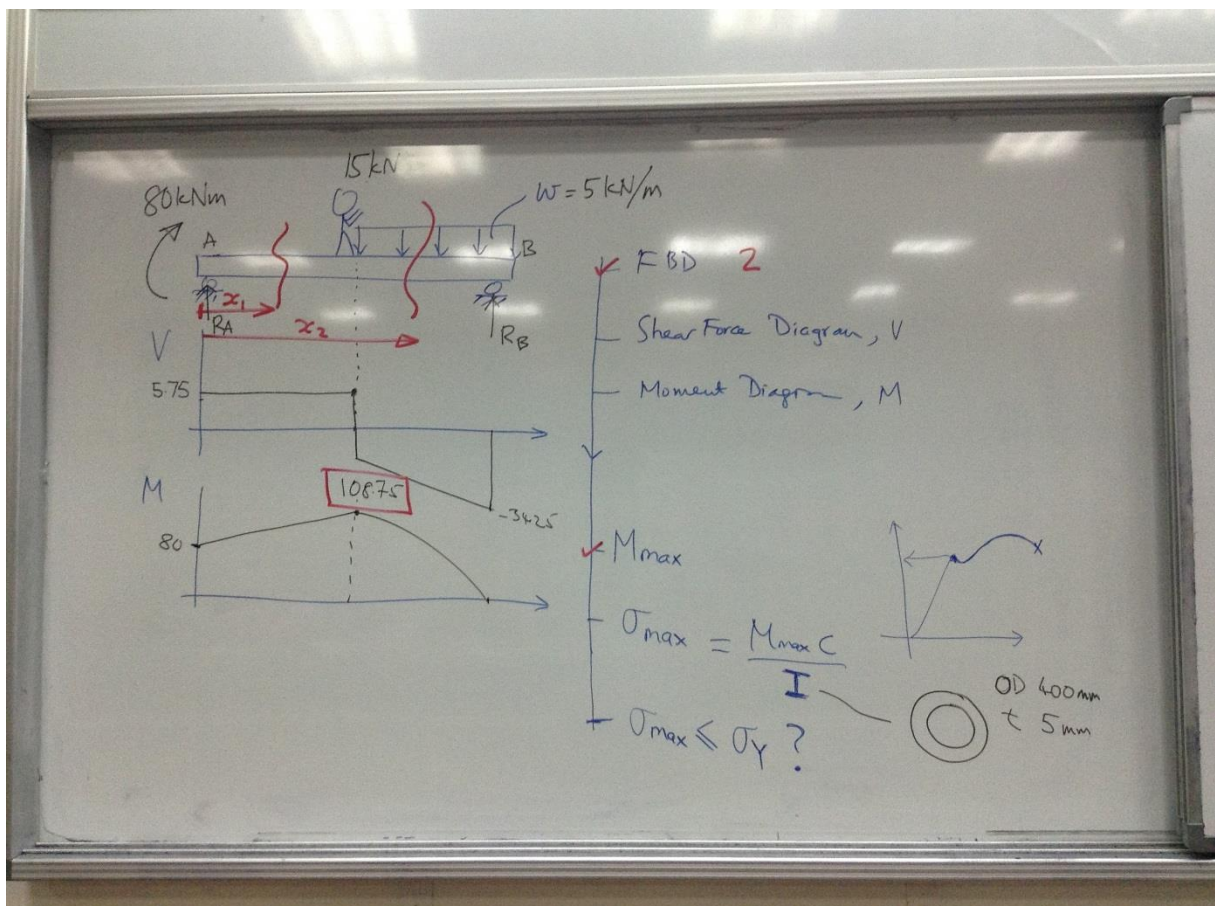 15kN
80kNm
w = 5 kN/m
A
B
x₁
RA
x₂
RB
V
5.75
-34.25
M
108.75
80
FBD 2
Shear Force Diagram, V
Moment Diagram, M
Mmax
σmax = Mmax C / I
σmax ≤ σY ?
OD 400mm
t 5mm